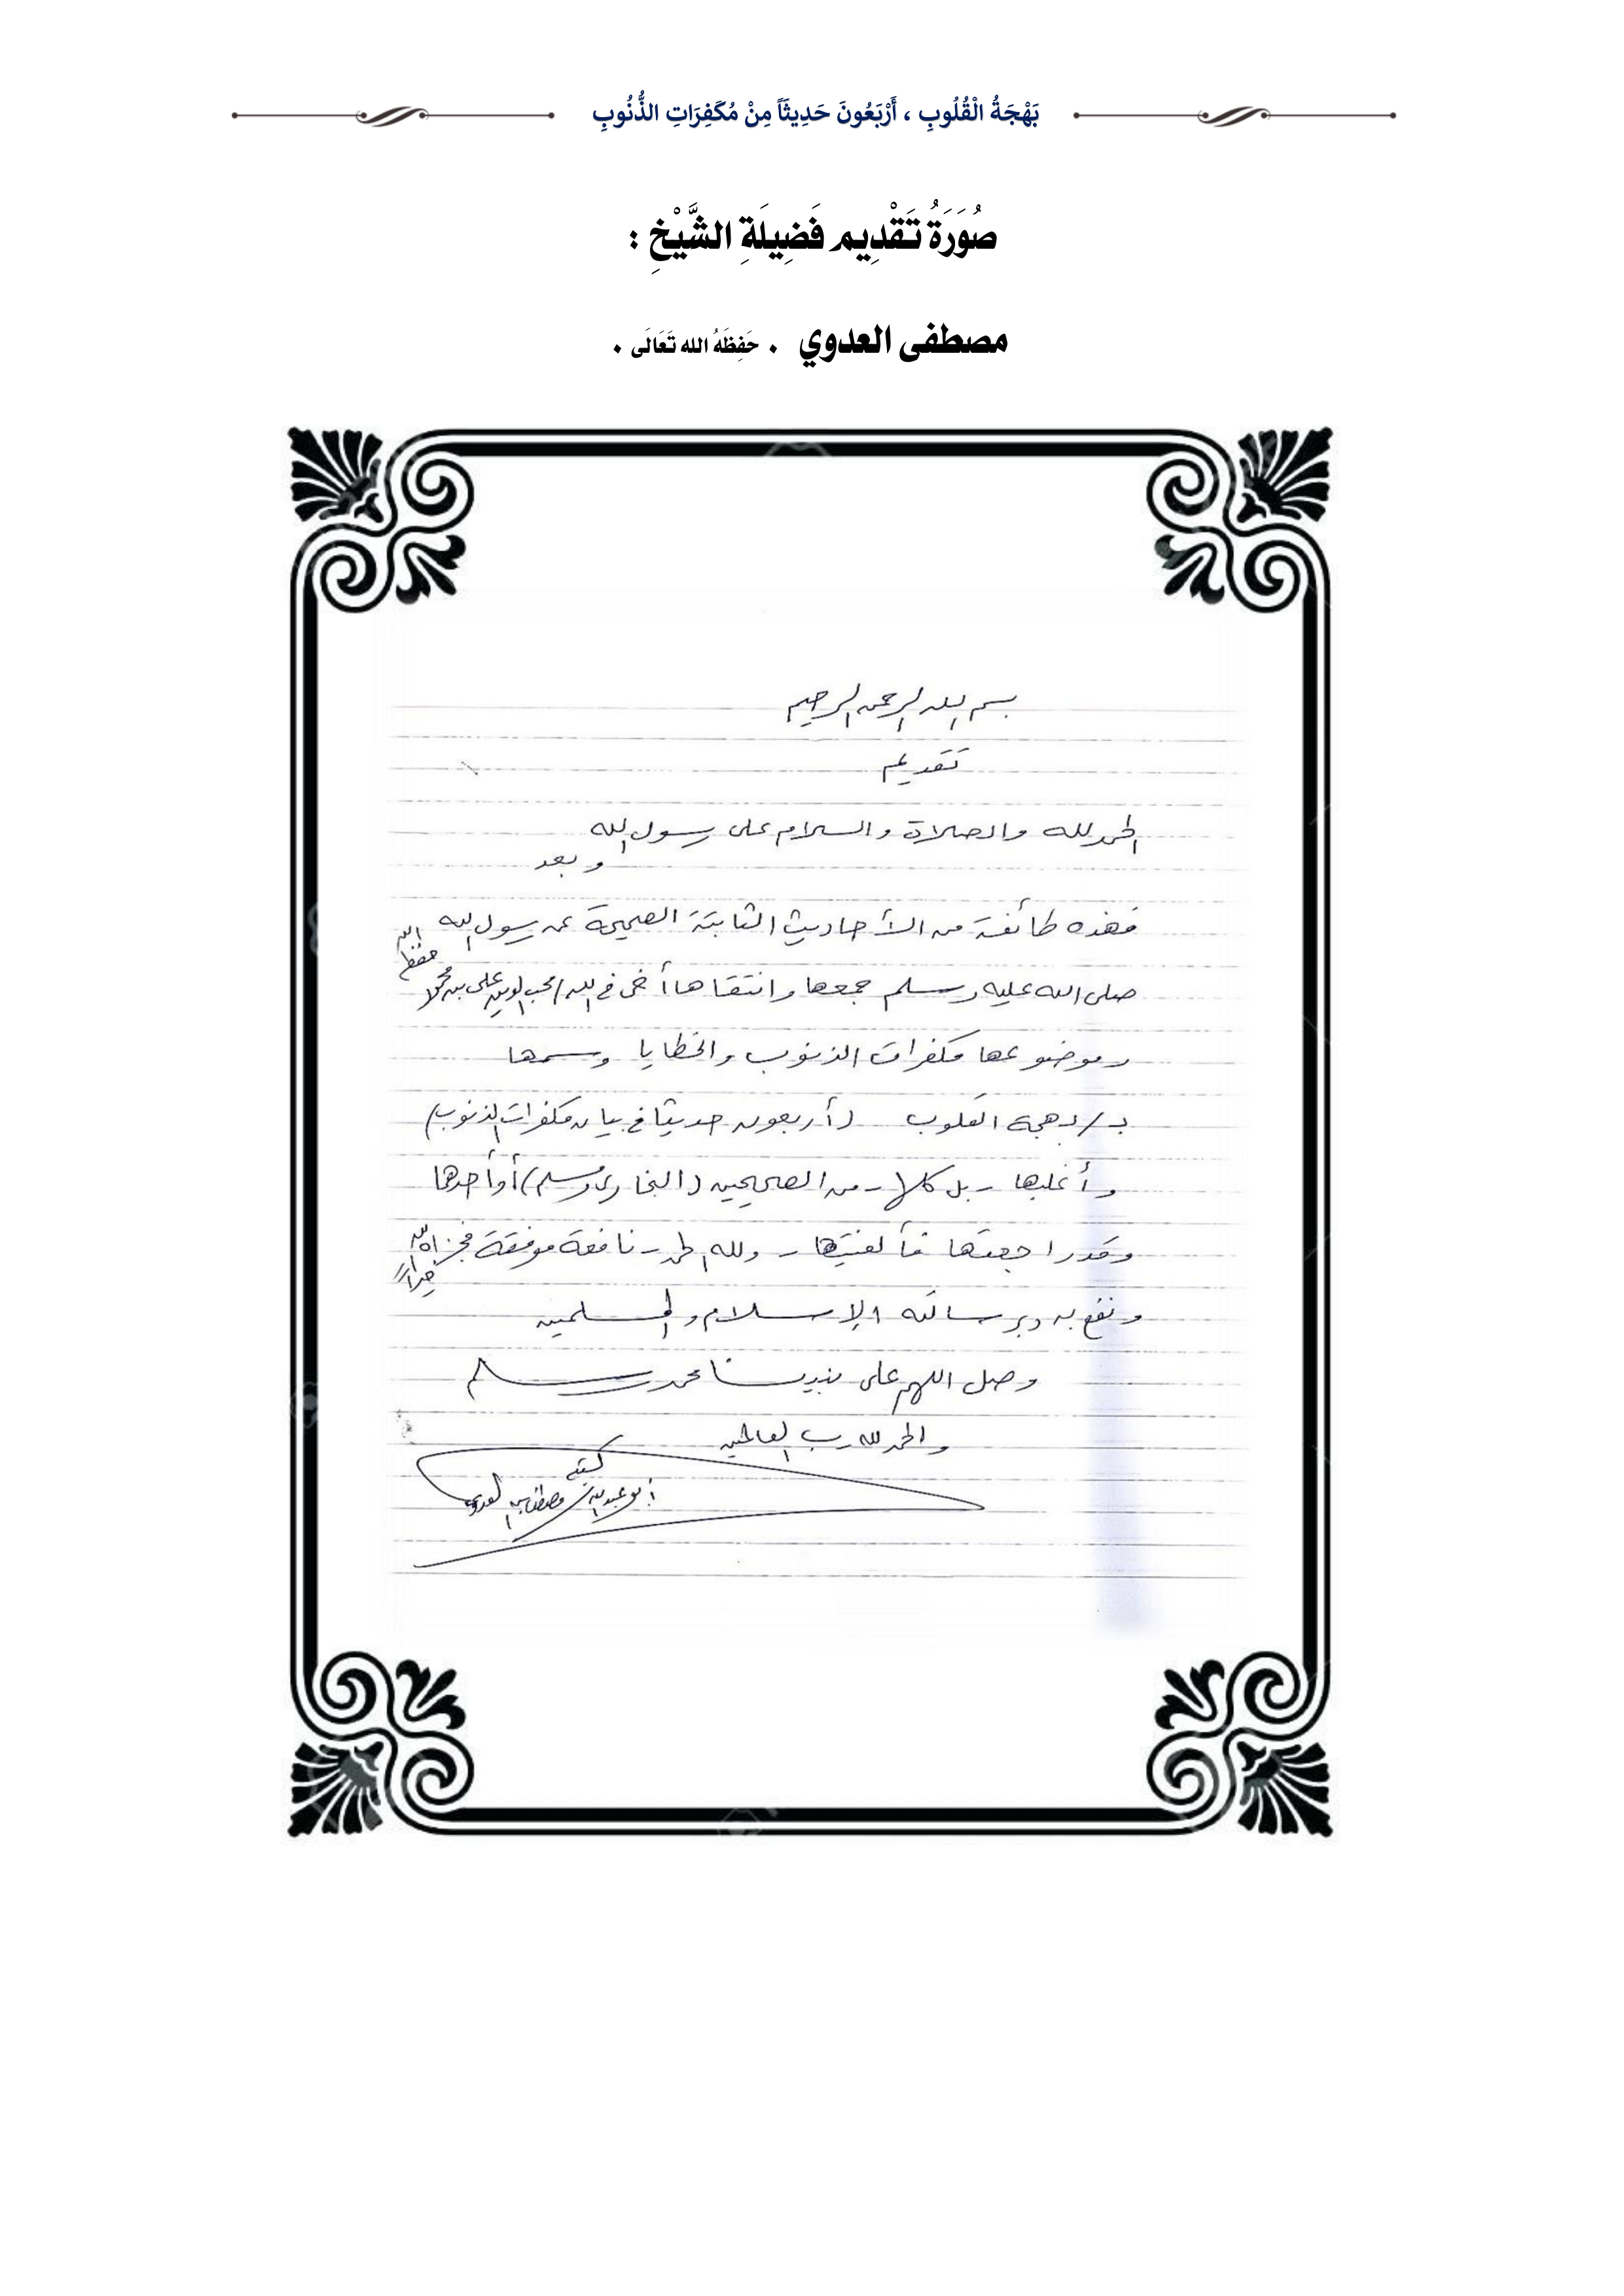 بَهْجَةُ الْقُلُوبِ ، أَرْبَعُونَ حَدِيثَاً مِنْ مُكَفِرَاتِ الذُّنُوبِ
صُوَرَةُ تَقْدِيم فَضِيلَةِ الشَّيْخِ :
مصطفى العدوي . حَفِظَهُ الله تَعَالَى .
بسم الله الرحمن الرحيم
تقديم
الحمد لله والصلاة والسلام على رسول الله
وبعد
فهذه طائفة من الأحاديث الثابتة الصحيحة عن رسول الله
صلى الله عليه وسلم جمعها وانتقاها أخي في الله / محب الدين علي بن محمود حفظه الله
وموضوعها مكفرات الذنوب والخطايا وسمها
بـ / بهجة القلوب (أربعون حديثا في بيان مكفرات الذنوب)
وأغلبها - بل كلها - من الصحيحين (البخاري ومسلم) أو أحدهما
وقد راجعتها فألفيتها - ولله الحمد - نافعة موفقة فجزاه الله خيرا
ونفع به وبرسالته الإسلام والمسلمين
وصل اللهم على نبينا محمد وسلم
والحمد لله رب العالمين
كتبه
أبو عبد الله / مصطفى بن العدوي